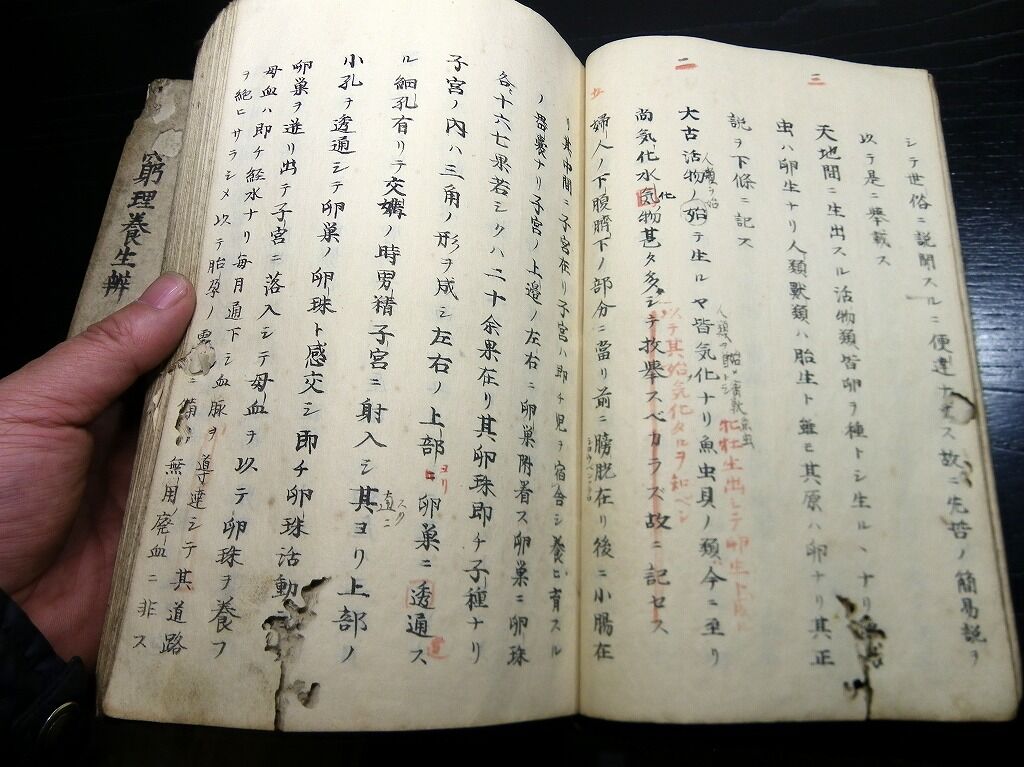 シテ世俗ニ説聞スルニ便達ナ
ス故ニ先哲ノ簡易説ヲ
以テ是ニ挙載ス
三
天地間ニ生出スル活物類皆卵ヲ種トシ生ル、ナリ
虫ハ卵生ナリ人類獣類ハ胎生ト雖モ其原ハ卵ナリ其正
説ヲ下條ニ記ス
二
大古活物ノ始テ生ルヤ皆気化ナリ魚虫貝ノ類今ニ至リ
人類ヲ始
尚気化水気物甚タ多シテ枚挙スベカラズ故ニ記セス
化
以テ其始気化タルヲ知ベシ
牝牡生出シテ卵生
婦人ノ下腹臍下ノ部分ニ當リ前ニ膀胱在リ後ニ小腸在
リ其中間ニ子宮在リ子宮ハ即チ児ヲ宿舎シ養ヒ育スル
ノ器嚢ナリ子宮ノ上邉ノ左右ニ卵巣附着ス卵巣ニ卵珠
各十六七果若シクハ二十余果在リ其卵珠即チ子種ナリ
子宮ノ内ハ三角ノ形ヲ成シ左右ノ上部ヨリ卵巣ニ透通ス
ル細孔有リテ交媾ノ時男精子宮ニ射入シ其ヨリ上部ノ
直ニ
スグ
小孔ヲ透通シテ卵巣ノ卵珠ト感交シ即チ卵珠活動
卵巣ヲ迸リ出テ子宮ニ落入シテ母血ヲ以テ卵珠ヲ養フ
母血ハ即チ経水ナリ毎月通下シ血脈ヲ導達シテ其道路
ヲ絶ヒサラシメ以テ胎孕ノ無用ノ廃血ニ非ス
窮理養生辨